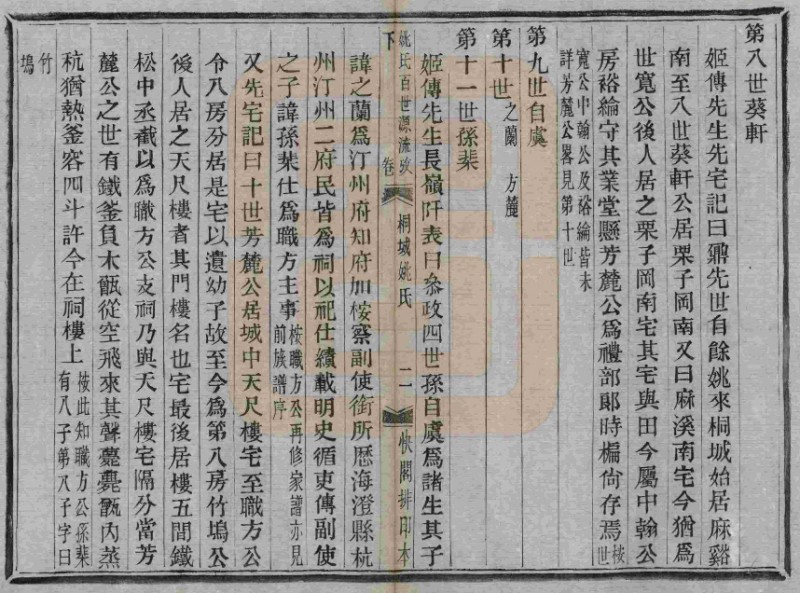 第八世葵軒
姬傳先生先宅記曰鼐先世自餘姚來桐城始居麻谿
南至八世葵軒公居栗子岡南又曰麻溪南宅今猶爲
世寬公後人居之栗子岡南宅其宅與田今屬中翰公
房裕綸守其業堂懸芳麓公爲禮部郞時楄尙存焉
按世
寬公中翰公及裕綸皆未
詳芳麓公畧見第十世
第九世自虞
第十世
之蘭 方麓
第十一世孫棐
姬傳先生長嶺阡表曰叅政四世孫自虞爲諸生其子
姚氏百世源流攷 卷下 桐城姚氏 二 快閣排印本
諱之蘭爲汀州府知府加按察副使銜所歷海澄縣杭
州汀州二府民皆爲祠以祀仕績載明史循吏傳副使
之子諱孫棐仕爲職方主事
按職方公再修家譜亦見
前族譜序
又先宅記曰十世芳麓公居城中天尺樓宅至職方公
令八房分居是宅以遺幼子故至今爲第八房竹塢公
後人居之天尺樓者其門樓名也宅最後居樓五間鐵
松中丞截以爲職方公支祠乃與天尺樓宅隔分當芳
麓公之世有鐵釜負木甑從空飛來其聲甍甍甑內蒸
秔猶熱釜容四斗許今在祠樓上
按此知職方公孫棐
有八子第八子字曰
竹
塢